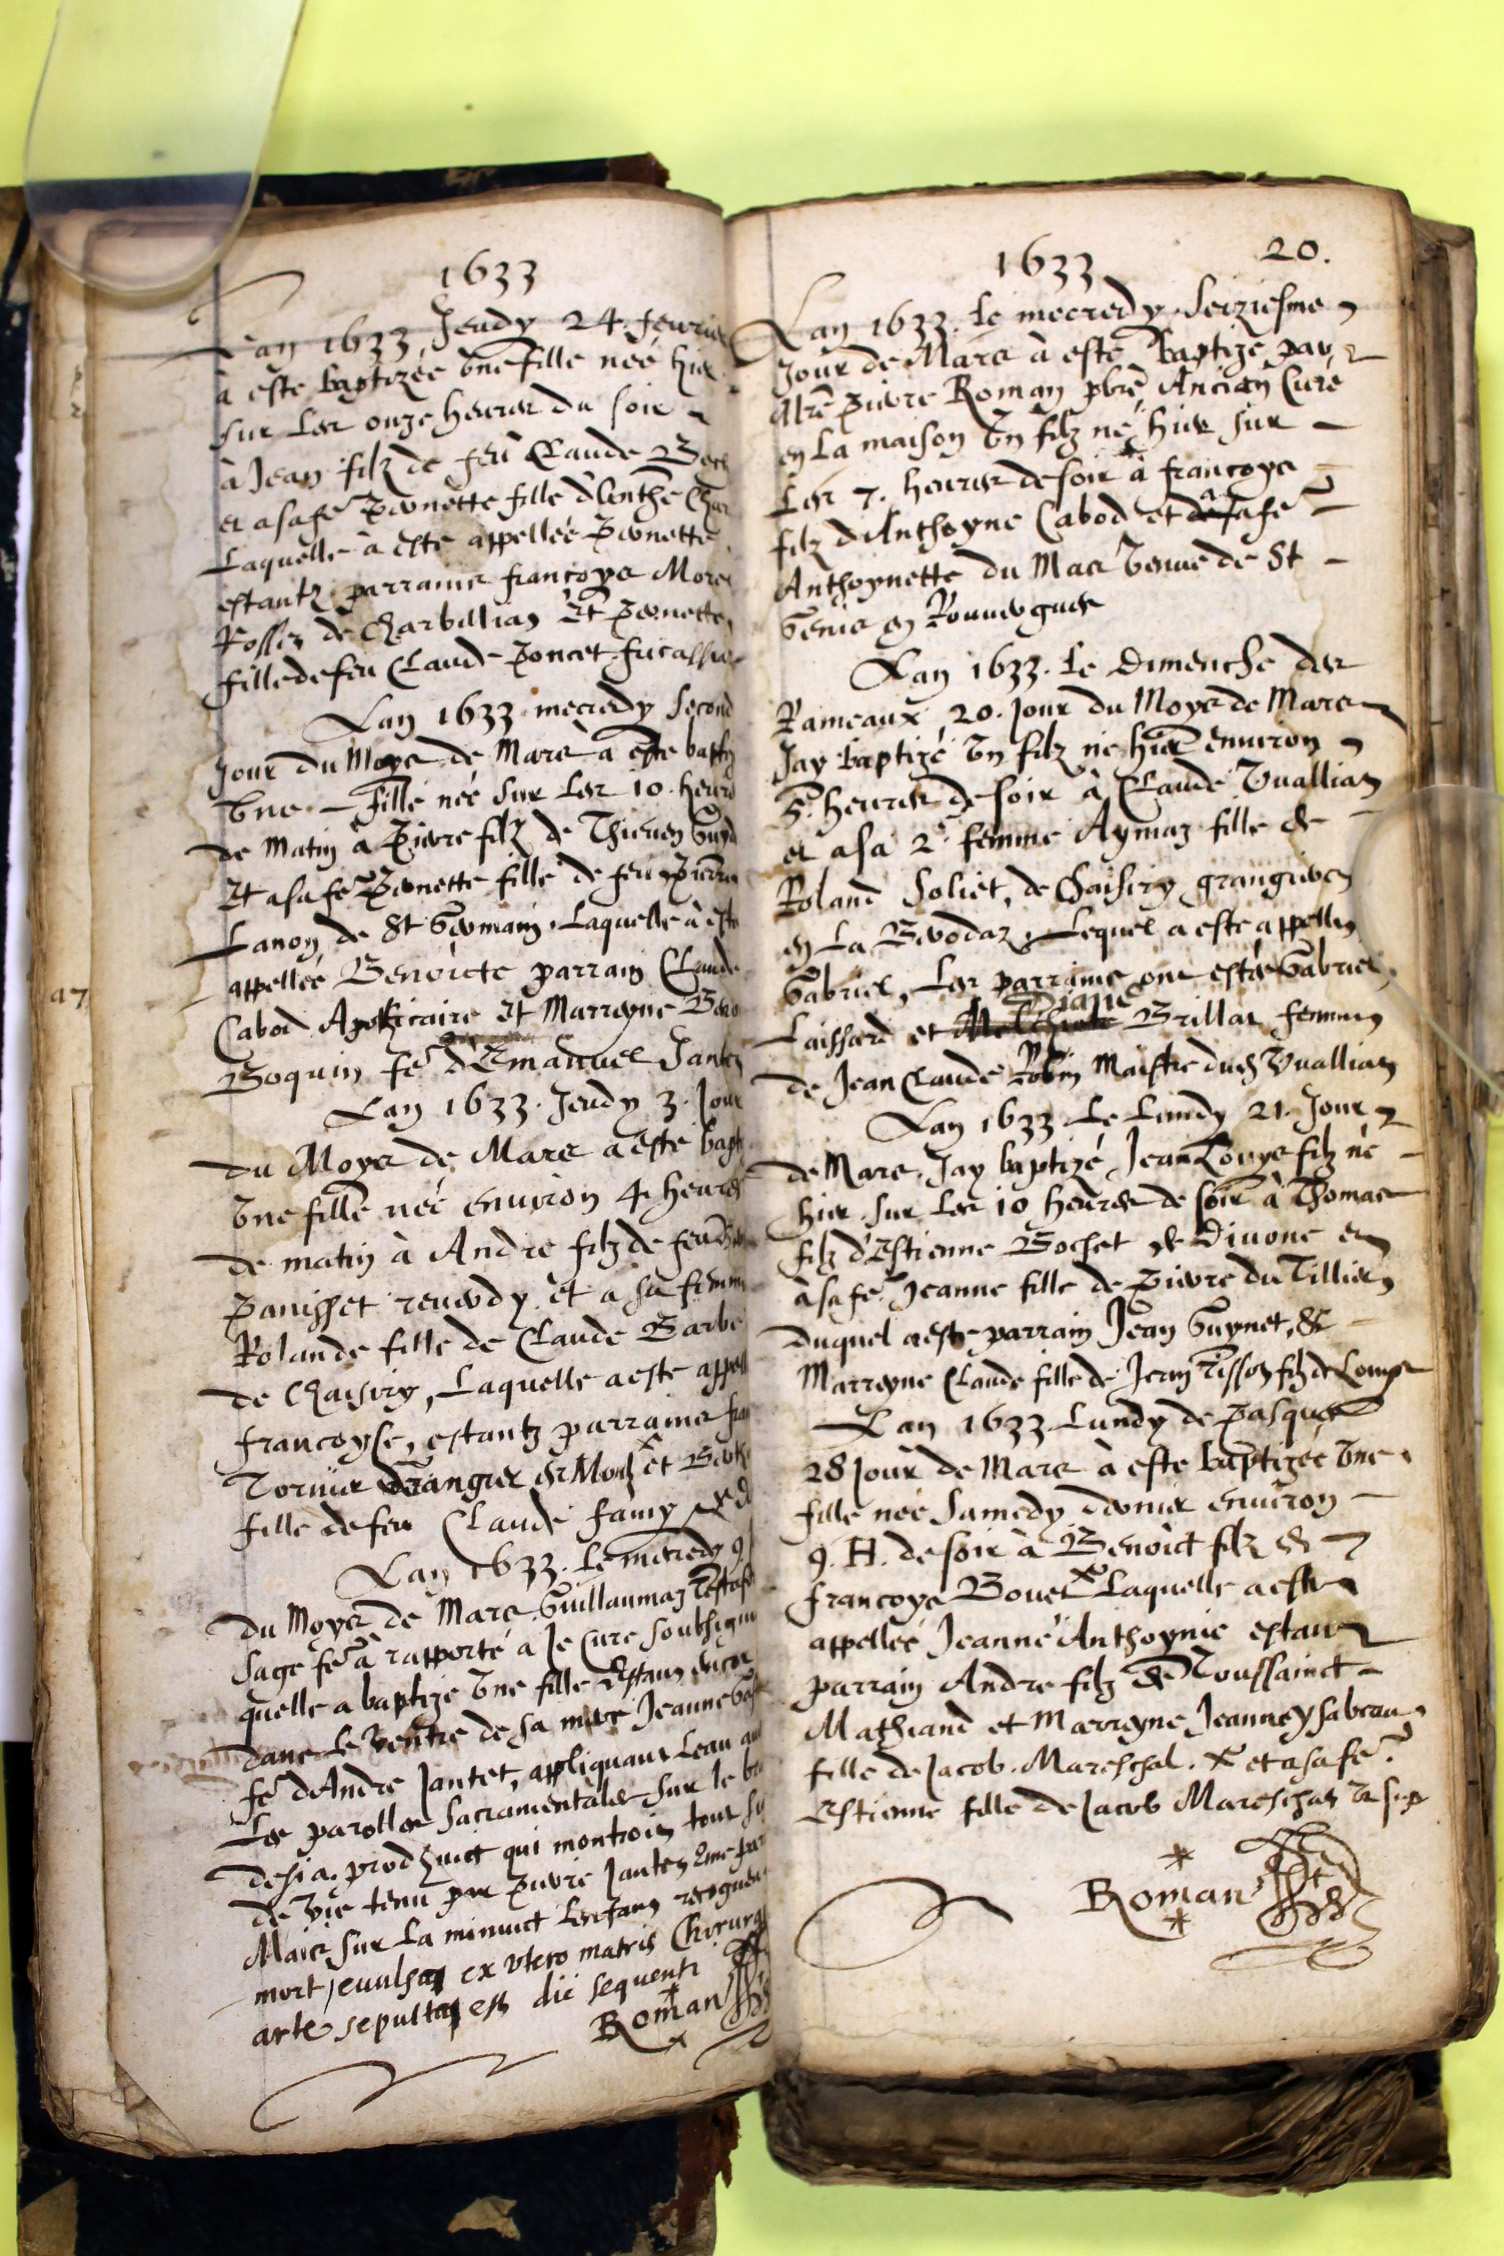 1633
Lan 1633 Jeudy 24. feurier
à este baptizée vne fille née hier
sur les onze heures du soir
à Jean filz de feu Claude
et a sa fe Pernette fille d'Anthe
Laquelle à este appellée Pernette
estantz parrains françoys Morel
Rosset de Charbillian Et Pernette
fille de feu Claude Poncet
Lan 1633 mecredy second
jour du Moys de Mars à este bapti
vne fille née sur les 10. heures
de matin à Pierre filz de Thieuen
Et a sa fe Pernette fille de feu Pierre
Lanoy de St Germain. Laquelle à este
appellée Benoicte parrain Claude
Cabod Apothicaire et Marreyne
Boquin fe d'Emanuel Jantet
Lan 1633. Jeudy 3. Jour
du Moys de Mars a esté bapti
vne fille née enuiron 4. heures
de matin à Andre filz de feu
Panisset reuerdy et a sa femme
Rolande fille de Claude Barbe
de Chaisiry, Laquelle a este appell
francoyse, estantz parrains fran
Tornier granger et
fille de feu Claude famy
Lan 1633. le mecredy 9
du Moys de Mars. Guillaumaz
sage fe à rapporté a Je Curé soubsigne
quelle a baptizé vne fille estant encor
dans le ventre de sa mere Jeanne
fe d'Andre Jantet, appliquant leau
Les parolles sacramentales sur le bra
desia prodhuict qui montroit tout
de vie tenu par Pierre Jantet
Mais sur la minuict lenfant
mort, euulsa ex vtero matris Chirurg
arte sepulta est die sequenti
Roman
a7
1633
20.
Lan 1633. le mecredy. seiziesme
jour de Mars à este baptizé par
Mre Pierre Roman pbre Ancien Curé
en la maison vn filz né hier sur
les 7. heures de soir à francoys
filz d'Anthoyne Cabod et a sa fe
Anthoynette du Mas venue de St
Genis en Rouuergues
Lan 1633. le Dimenche des
Rameaux 20. jour du Moys de Mars
Jay baptizé vn filz né hier enuiron
5. heures de soir à Claude Vuallian
et a sa 2e femme Aymaz fille de
Roland Soliet, de Chaisiry grangiere
en La Berodaz, Lequel a este appelle
Gabriel, Les parrains ont estés Gabriel
Laissard et Diane Brillat femme
de Jean Claude Robin Maistre dud Vuallian
Lan 1633. Le Lundy 21. Jour
de Mars. Jay baptizé Jean Louys filz né
hier sur les 10 heures de soir à Thomas
filz d'Estienne Bochet de Diuone et
à sa fe Jeanne fille de Pierre du Tillier
duquel a este parrain Jean Guynet, &
Marreyne Claude fille de Jean Tissot filz de Louys
Lan 1633. Lundy de Pasques
28 jour de Mars à este baptizée vne
fille née Samedy dernier enuiron
9. H. de soir à Benoict filz de
françoys Bouet Laquelle a este
appellée Jeanne Anthoynie estant
parrain Andre filz de Toussainct
Mathiand et Marreyne Jeanne ysabeau
fille de Jacob. Mareschal. et a sa fe
Estienne fille de Jacob Mareschal
Roman